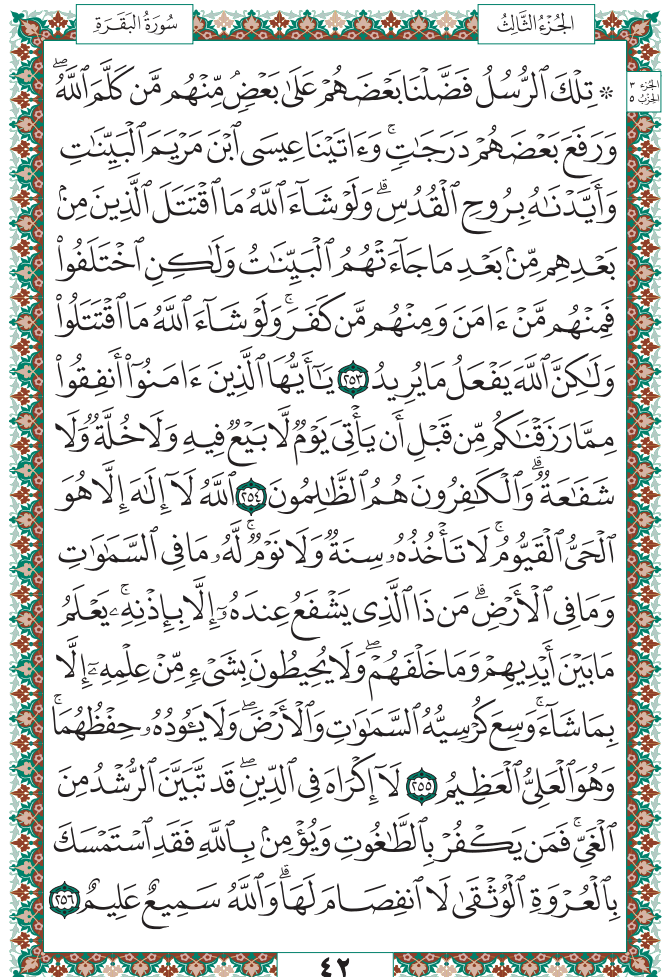 الجُزْءُ الثَّالِثُ
سُورَةُ البَقَرَةِ
الجزء ٣
الحزب ٥
۞ تِلْكَ ٱلرُّسُلُ فَضَّلْنَا بَعْضَهُمْ عَلَىٰ بَعْضٖۘ مِّنْهُم مَّن كَلَّمَ ٱللَّهُۖ
وَرَفَعَ بَعْضَهُمْ دَرَجَٰتٖۚ وَءَاتَيْنَا عِيسَى ٱبْنَ مَرْيَمَ ٱلْبَيِّنَٰتِ
وَأَيَّدْنَٰهُ بِرُوحِ ٱلْقُدُسِۗ وَلَوْ شَآءَ ٱللَّهُ مَا ٱقْتَتَلَ ٱلَّذِينَ مِنۢ
بَعْدِهِم مِّنۢ بَعْدِ مَا جَآءَتْهُمُ ٱلْبَيِّنَٰتُ وَلَٰكِنِ ٱخْتَلَفُوا۟
فَمِنْهُم مَّنْ ءَامَنَ وَمِنْهُم مَّن كَفَرَۚ وَلَوْ شَآءَ ٱللَّهُ مَا ٱقْتَتَلُوا۟
وَلَٰكِنَّ ٱللَّهَ يَفْعَلُ مَا يُرِيدُ ٢٥٣ يَٰٓأَيُّهَا ٱلَّذِينَ ءَامَنُوٓا۟ أَنفِقُوا۟
مِمَّا رَزَقْنَٰكُم مِّن قَبْلِ أَن يَأْتِىَ يَوْمٞ لَّا بَيْعٞ فِيهِ وَلَا خُلَّةٞ وَلَا
شَفَٰعَةٞۗ وَٱلْكَٰفِرُونَ هُمُ ٱلظَّٰلِمُونَ ٢٥٤ ٱللَّهُ لَآ إِلَٰهَ إِلَّا هُوَ
ٱلْحَىُّ ٱلْقَيُّومُۚ لَا تَأْخُذُهُۥ سِنَةٞ وَلَا نَوْمٞۚ لَّهُۥ مَا فِى ٱلسَّمَٰوَٰتِ
وَمَا فِى ٱلْأَرْضِۗ مَن ذَا ٱلَّذِى يَشْفَعُ عِندَهُۥٓ إِلَّا بِإِذْنِهِۦۚ يَعْلَمُ
مَا بَيْنَ أَيْدِيهِمْ وَمَا خَلْفَهُمْۖ وَلَا يُحِيطُونَ بِشَىْءٖ مِّنْ عِلْمِهِۦٓ إِلَّا
بِمَا شَآءَۚ وَسِعَ كُرْسِيُّهُ ٱلسَّمَٰوَٰتِ وَٱلْأَرْضَۖ وَلَا يَـُٔودُهُۥ حِفْظُهُمَاۚ
وَهُوَ ٱلْعَلِىُّ ٱلْعَظِيمُ ٢٥٥ لَآ إِكْرَاهَ فِى ٱلدِّينِۖ قَد تَّبَيَّنَ ٱلرُّشْدُ مِنَ
ٱلْغَىِّۚ فَمَن يَكْفُرْ بِٱلطَّٰغُوتِ وَيُؤْمِنۢ بِٱللَّهِ فَقَدِ ٱسْتَمْسَكَ
بِٱلْعُرْوَةِ ٱلْوُثْقَىٰ لَا ٱنفِصَامَ لَهَاۗ وَٱللَّهُ سَمِيعٌ عَلِيمٌ ٢٥٦
٤٢